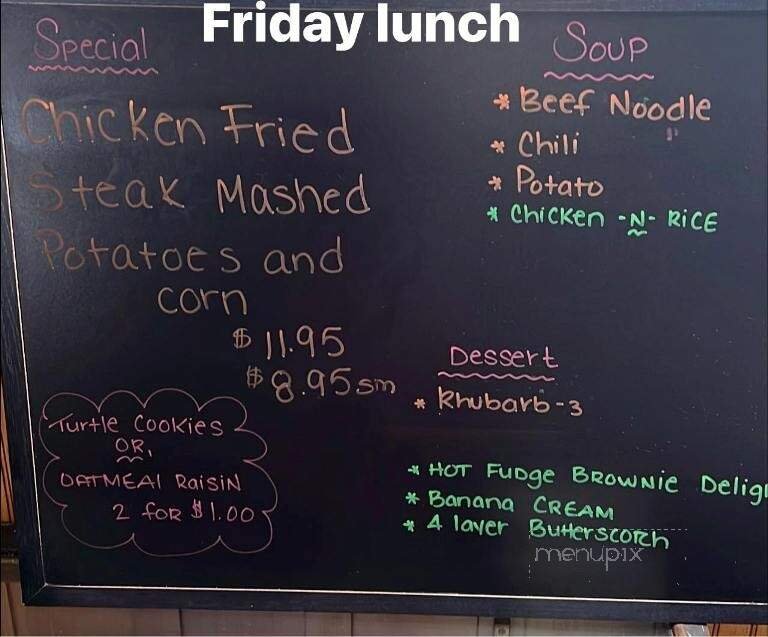 Friday lunch
Special
Chicken Fried
Steak Mashed
Potatoes and
corn
$ 11.95
$ 8.95 sm
Turtle Cookies
OR,
OATMEAl RaisiN
2 foR $1.00
Soup
* Beef Noodle
* Chili
* Potato
* Chicken -N- RiCE
Dessert
* Rhubarb-3
* HOT FuDge BROWNiE Delig
* Banana CREAM
* 4 layer Butterscotch
menupix